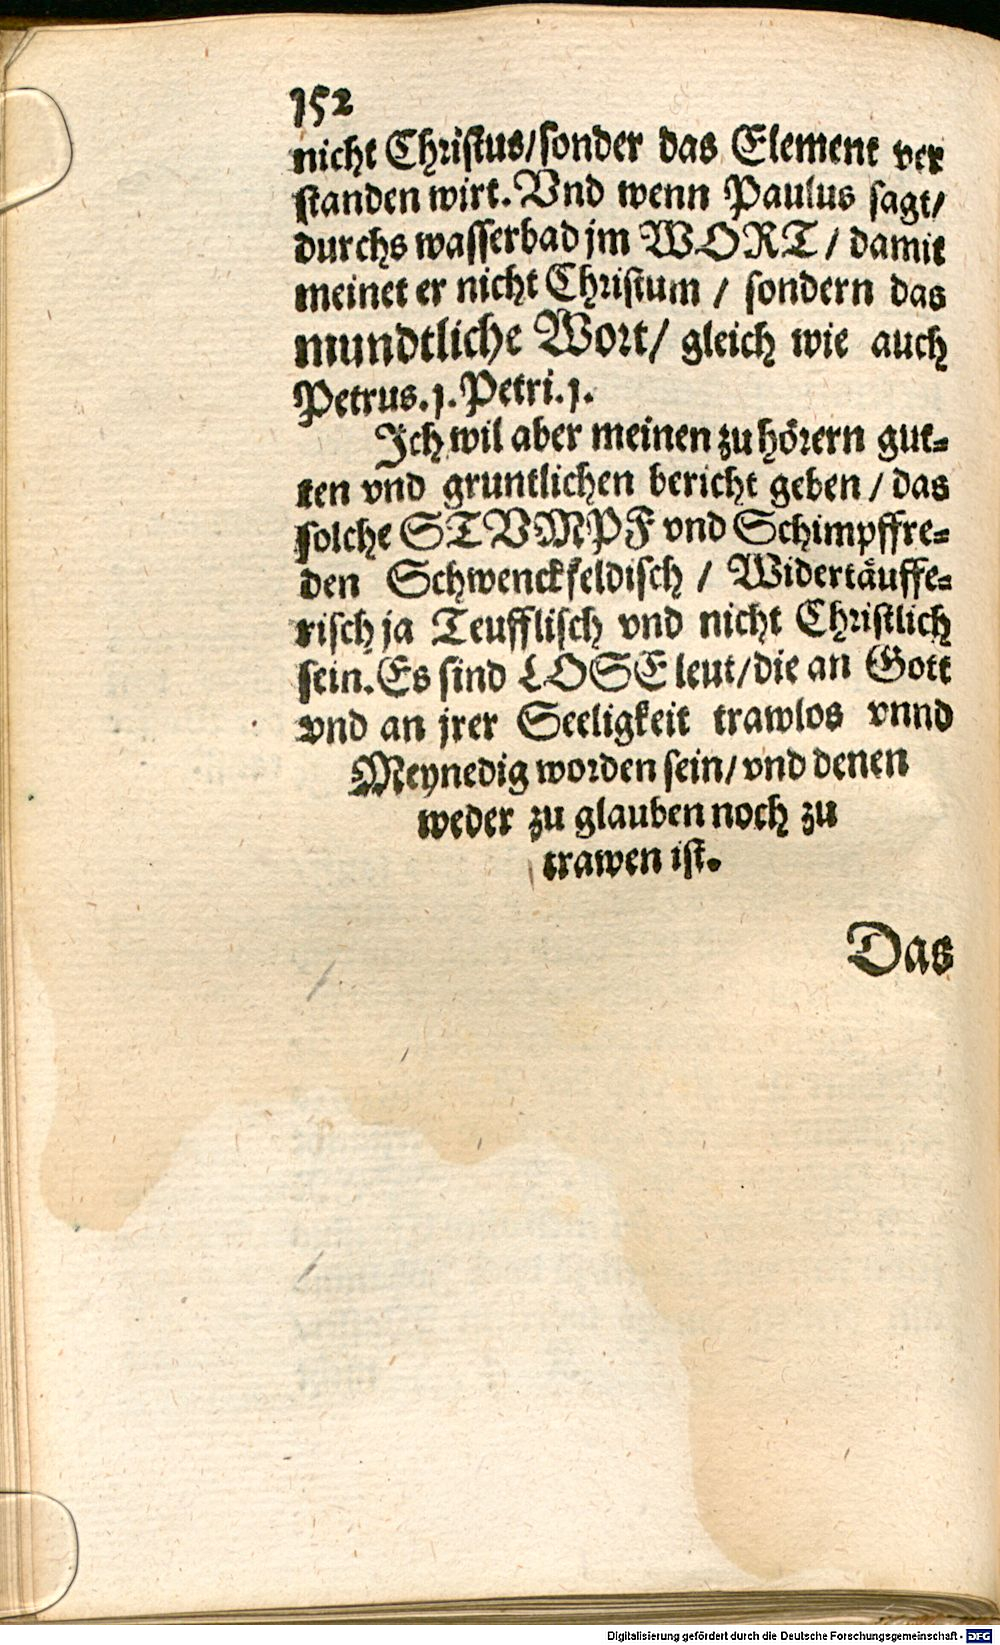 152
nicht Christus/sonder das Element ver
standen wirt. Vnd wenn Paulus sagt/
durchs wasserbad jm WORT / damit
meinet er nicht Christum / sondern das
mundtliche Wort/ gleich wie auch
Petrus.1.Petri.1.
Ich wil aber meinen zu hörern gut=
ten vnd gruntlichen bericht geben / das
solche STVMPF vnd Schimpffre=
den Schwenckfeldisch / Widertäuffe=
risch ja Teufflisch vnd nicht Christlich
sein. Es sind LOSE leut/die an Gott
vnd an jrer Seeligkeit trawlos vnnd
Meynedig worden sein/ vnd denen
weder zu glauben noch zu
trawen ist.
Das
Digitalisierung gefördert durch die Deutsche Forschungsgemeinschaft - DFG